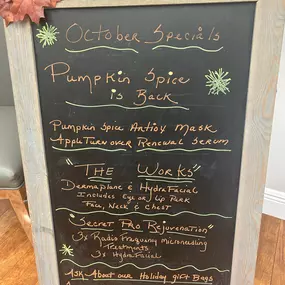 October Specials
Pumpkin Spice
is Back
Pumpkin Spice Antiox Mask
Apple Turnover Renewal Serum
"The Works"
Dermaplane & HydraFacial
Includes Eye or Lip Perk
Face, Neck & Chest
"Secret Pro Rejuvenation"
3x Radio Frequency Microneedling
Treatments
3x Hydrafacial
Ask About our Holiday gift Bags